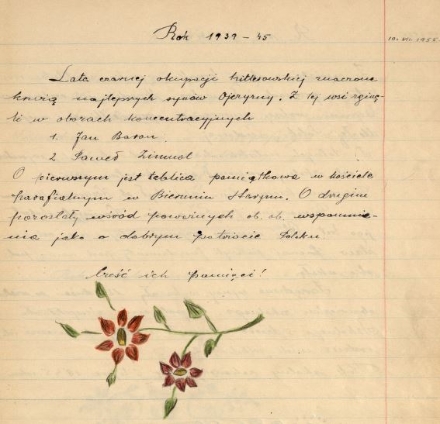 Rok 1939 - 45
10. VI. 1955
Lata czarnej okupacji hitlerowskiej znaczone
krwią najlepszych synów Ojczyzny. Z tej wsi zginę-
li w obozach koncentracyjnych
1. Jan Baron
2 Paweł
O pierwszym jest tablica pamiątkowa w kościele
parafialnym w Bieruniu Starym. O drugim
pozostały wśród powinnych wspomnie-
nia jako o dobrym Polaku
Cześć ich pamięci!